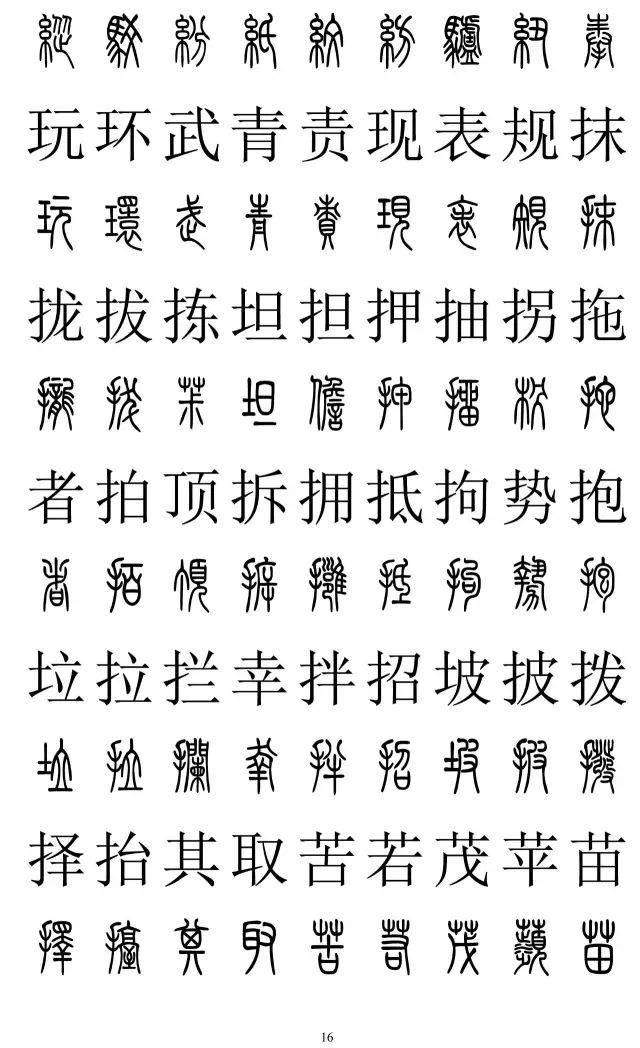 縱駁紛紙紋紡驢紐奉
玩环武青责现表规抹
玩環武青責現表規抹
拢拔拣坦担押抽拐拖
攏拔坦儋押抽枴拖
者拍顶拆拥抵拘势抱
者拍頂擁抵拘勢抱
垃拉拦幸拌招坡披拨
垃拉攔幸拌招坡披撥
择抬其取苦若茂苹苗
擇擡其取苦若茂蘋苗
16